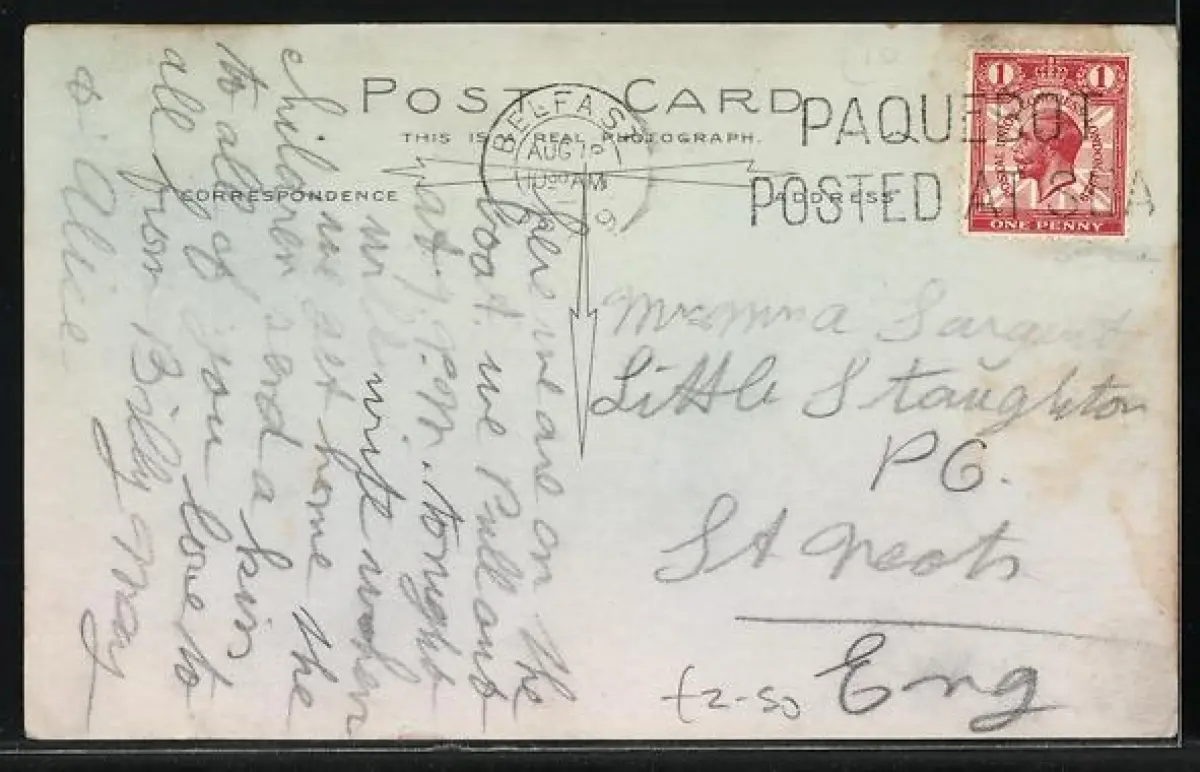 POST CARD
THIS IS A REAL PHOTOGRAPH.
CORRESPONDENCE
ADDRESS
BELFAS
AUG
AM
PAQUEBOT
POSTED AT SEA
1 1
POSTAL UNION CONGRESS
LONDON 1929
ONE PENNY
Here we are on the
boat. we Pull out
at 7. P.M. tonight
will write when
we get home the
children send a kiss
to all of you love to
all from Billy May
& Alice
Sargent
Little Staughton
P O.
St Neots
Eng
£2-50